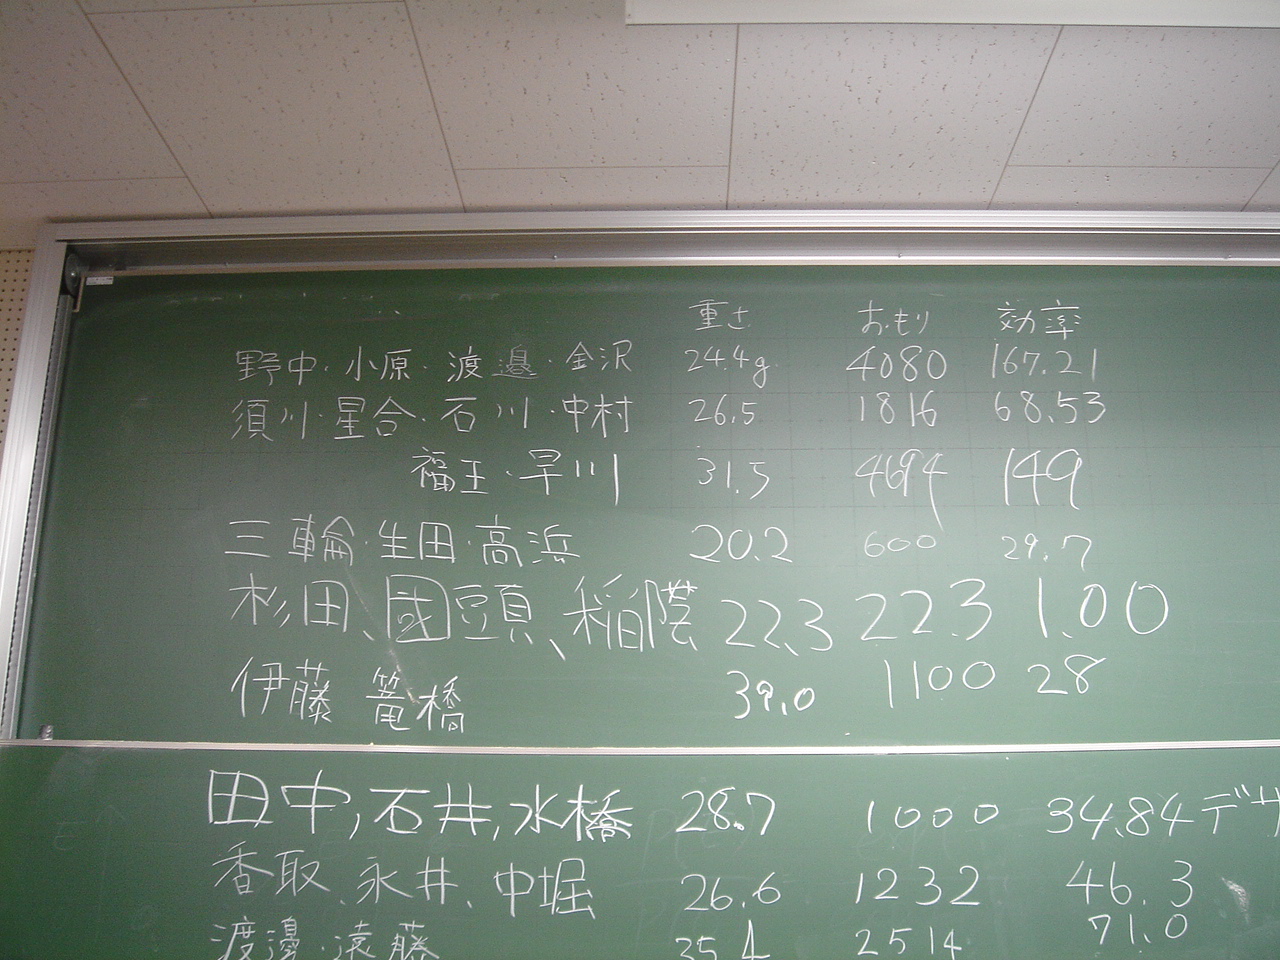 重さ おもり 効率
野中・小原・渡邉・金沢 24.4g 4080 167.21
須川・星合・石川・中村 26.5 1816 68.53
福王・早川 31.5 4694 149
三輪・生田・高浜 20.2 600 29.7
杉田、國頭、稲蔭 22.3 22.3 1.00
伊藤 篭橋 39.0 1100 28
田中,石井,水橋 28.7 1000 34.84 デザ
香取、永井、中堀 26.6 1232 46.3
渡邊・遠藤 35.4 2514 71.0